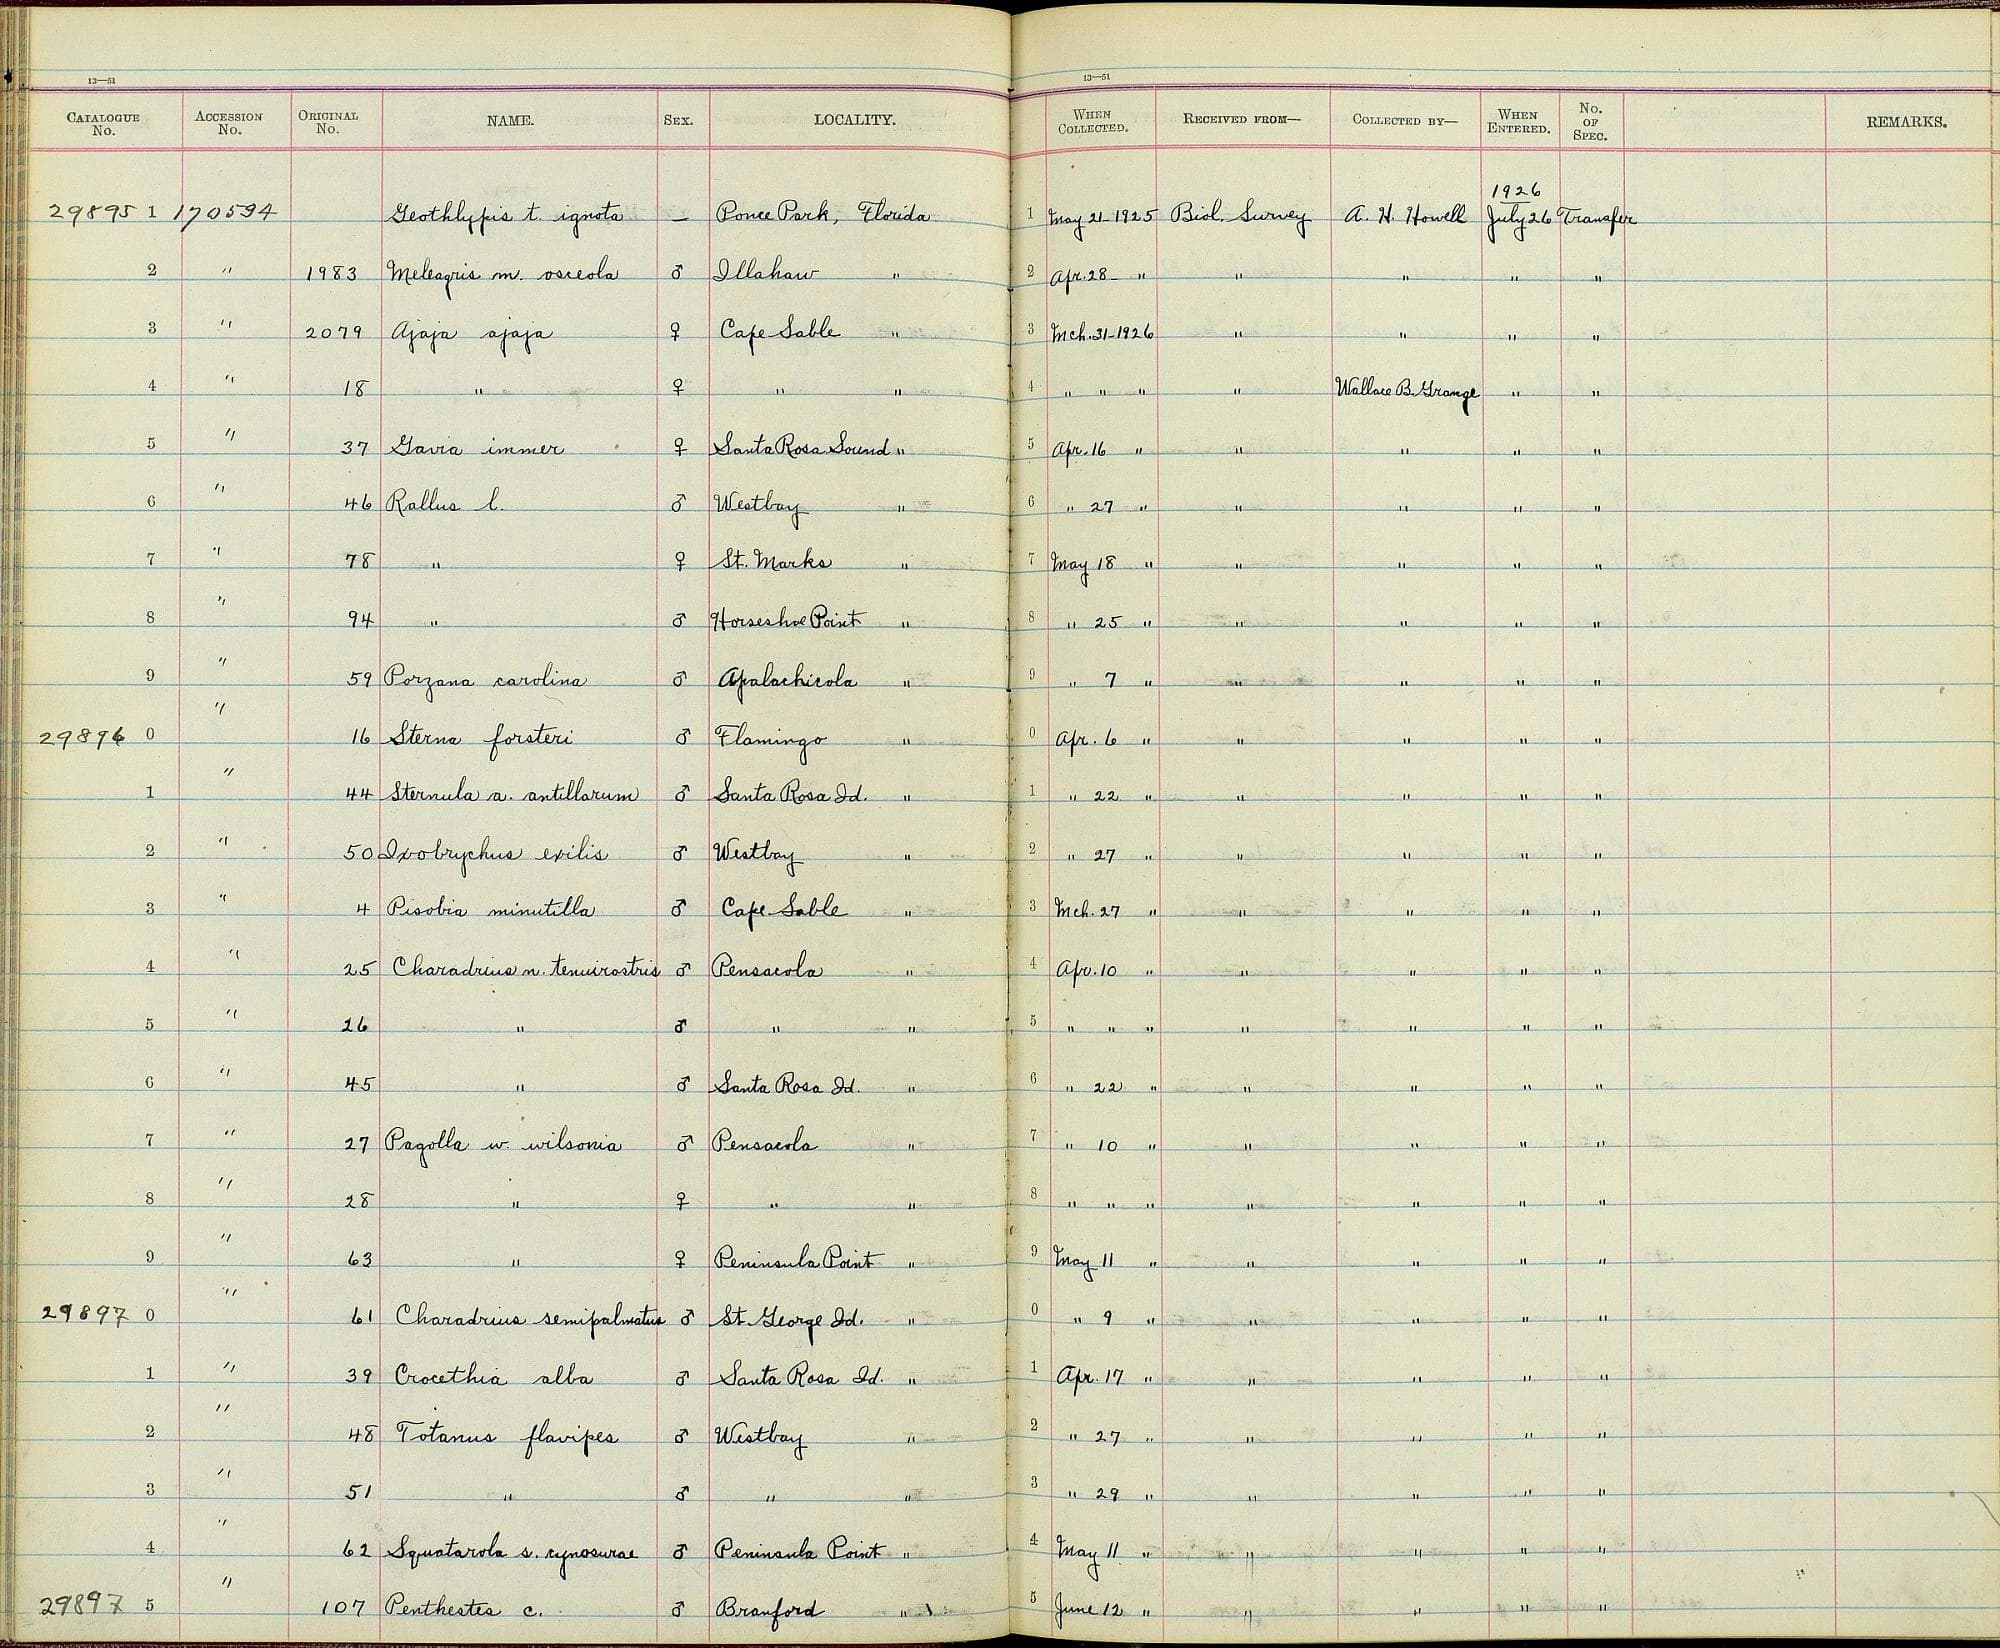 13—51 13—51
CATALOGUE No. ACCESSION No. ORIGINAL No. NAME. SEX. LOCALITY. WHEN COLLECTED. RECEIVED FROM— COLLECTED BY— WHEN ENTERED. No. OF SPEC. REMARKS.
1926
29895 1 170594 Geothlypis t. ignota — Ponce Park, Florida 1 May 21-1925 Biol. Survey A. H. Howell July 26 Transfer
2 " 1983 Meleagris m. osceola ♂ Illahaw " 2 Apr. 28- " " " " "
3 " 2079 Ajaja ajaja ♀ Cape Sable " 3 Mch. 31-1926 " " " "
4 " 18 " ♀ " " 4 " " " " Wallace B. Grange " "
5 " 37 Gavia immer ♀ Santa Rosa Sound " 5 Apr. 16 " " " " "
6 " 46 Rallus l. ♂ Westbay " 6 " 27 " " " " "
7 " 78 " ♀ St. Marks " 7 May 18 " " " " "
8 " 94 " ♂ Horseshoe Point " 8 " 25 " " " " "
9 " 59 Porzana carolina ♂ Apalachicola " 9 " 7 " " " " "
29896 0 " 16 Sterna forsteri ♂ Flamingo " 0 Apr. 6 " " " " "
1 " 44 Sternula a. antillarum ♂ Santa Rosa Id. " 1 " 22 " " " " "
2 " 50 Ixobrychus exilis ♂ Westbay " 2 " 27 " " " " "
3 " 4 Pisobia minutilla ♂ Cape Sable " 3 Mch. 27 " " " " "
4 " 25 Charadrius n. tenuirostris ♂ Pensacola " 4 Apr. 10 " " " " "
5 " 26 " ♂ " " 5 " " " " " " "
6 " 45 " ♂ Santa Rosa Id. " 6 " 22 " " " " "
7 " 27 Pagolla w. wilsonia ♂ Pensacola " 7 " 10 " " " " "
8 " 28 " ♀ " " 8 " " " " " " "
9 " 63 " ♀ Peninsula Point " 9 May 11 " " " " "
29897 0 " 61 Charadrius semipalmatus ♂ St. George Id. " 0 " 9 " " " " "
1 " 39 Crocethia alba ♂ Santa Rosa Id. " 1 Apr. 17 " " " " "
2 " 48 Totanus flavipes ♂ Westbay " 2 " 27 " " " " "
3 " 51 " ♂ " " 3 " 29 " " " " "
4 " 62 Squatarola s. cynosurae ♂ Peninsula Point " 4 May 11 " " " " "
29897 5 " 107 Penthestes c. ♂ Branford " 5 June 12 " " " " "